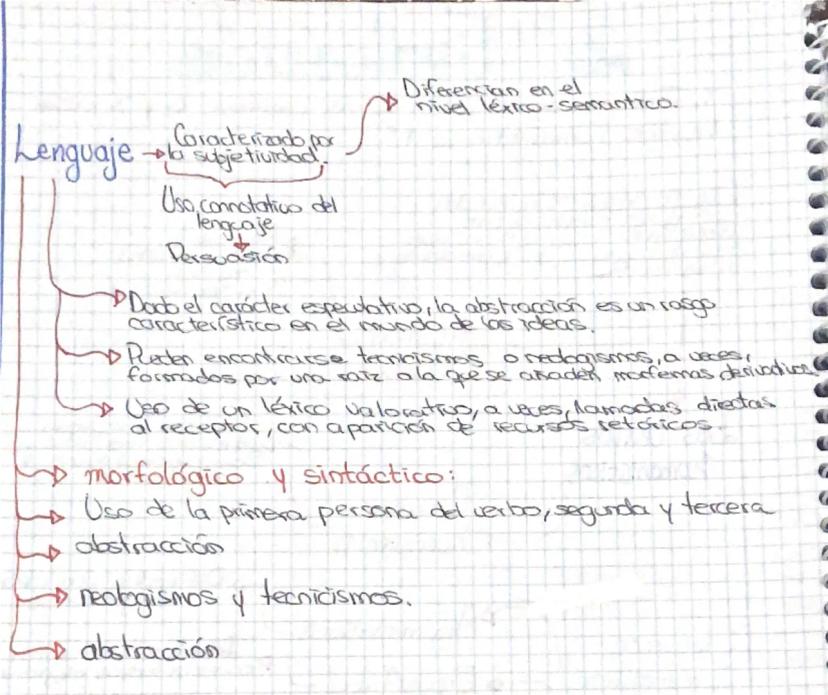 Diferencian en el
nivel léxico-semantico.
Lenguaje
Caracterizado por
la subjetividad.
Uso connotativo del
lenguaje
Persuasión
Dado el carácter especulativo, la abstracción es un rasgo
característico en el mundo de las ideas.
Pueden encontrarse tecnicismos o neologismos, a veces,
formados por una raiz a la que se añaden morfemas derivativos.
Uso de un léxico valorativo, a veces, llamadas directas
al receptor, con aparición de recursos retóricos.
morfológico y sintáctico:
Uso de la primera persona del verbo, segunda y tercera
abstracción
neologismos y tecnicismos.
abstracción